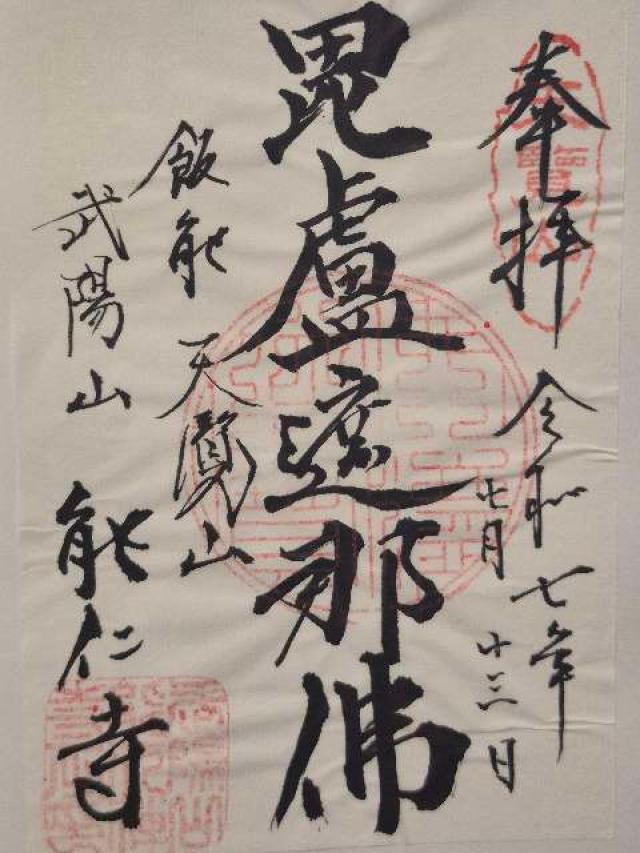 奉拝
令和七年
七月十三日
毘盧遮那佛
飯能 天覧山
武陽山
能仁寺